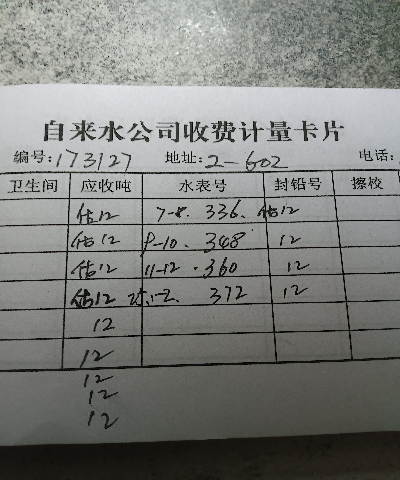 自来水公司收费计量卡片
编号:173127 地址:2-602 电话:
卫生间 应收吨 水表号 封铅号 擦校
估12 7-8. 336. 估12
估12 9-10. 348 12
估12 11-12. 360 12
估12 25.1-2. 372 12
12
12
12
12
12